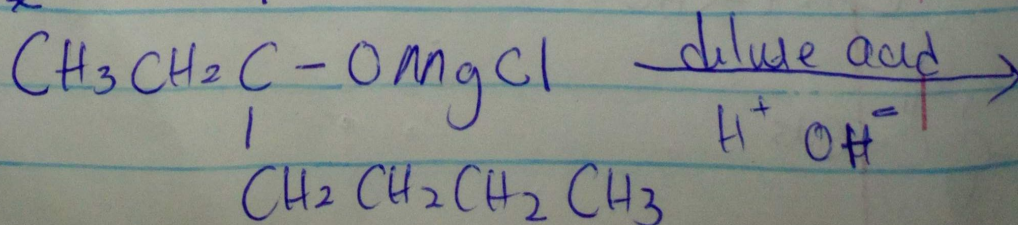 CH3CH2C-OMgCl dilute acid
H+ OH-
|
CH2CH2CH2CH3